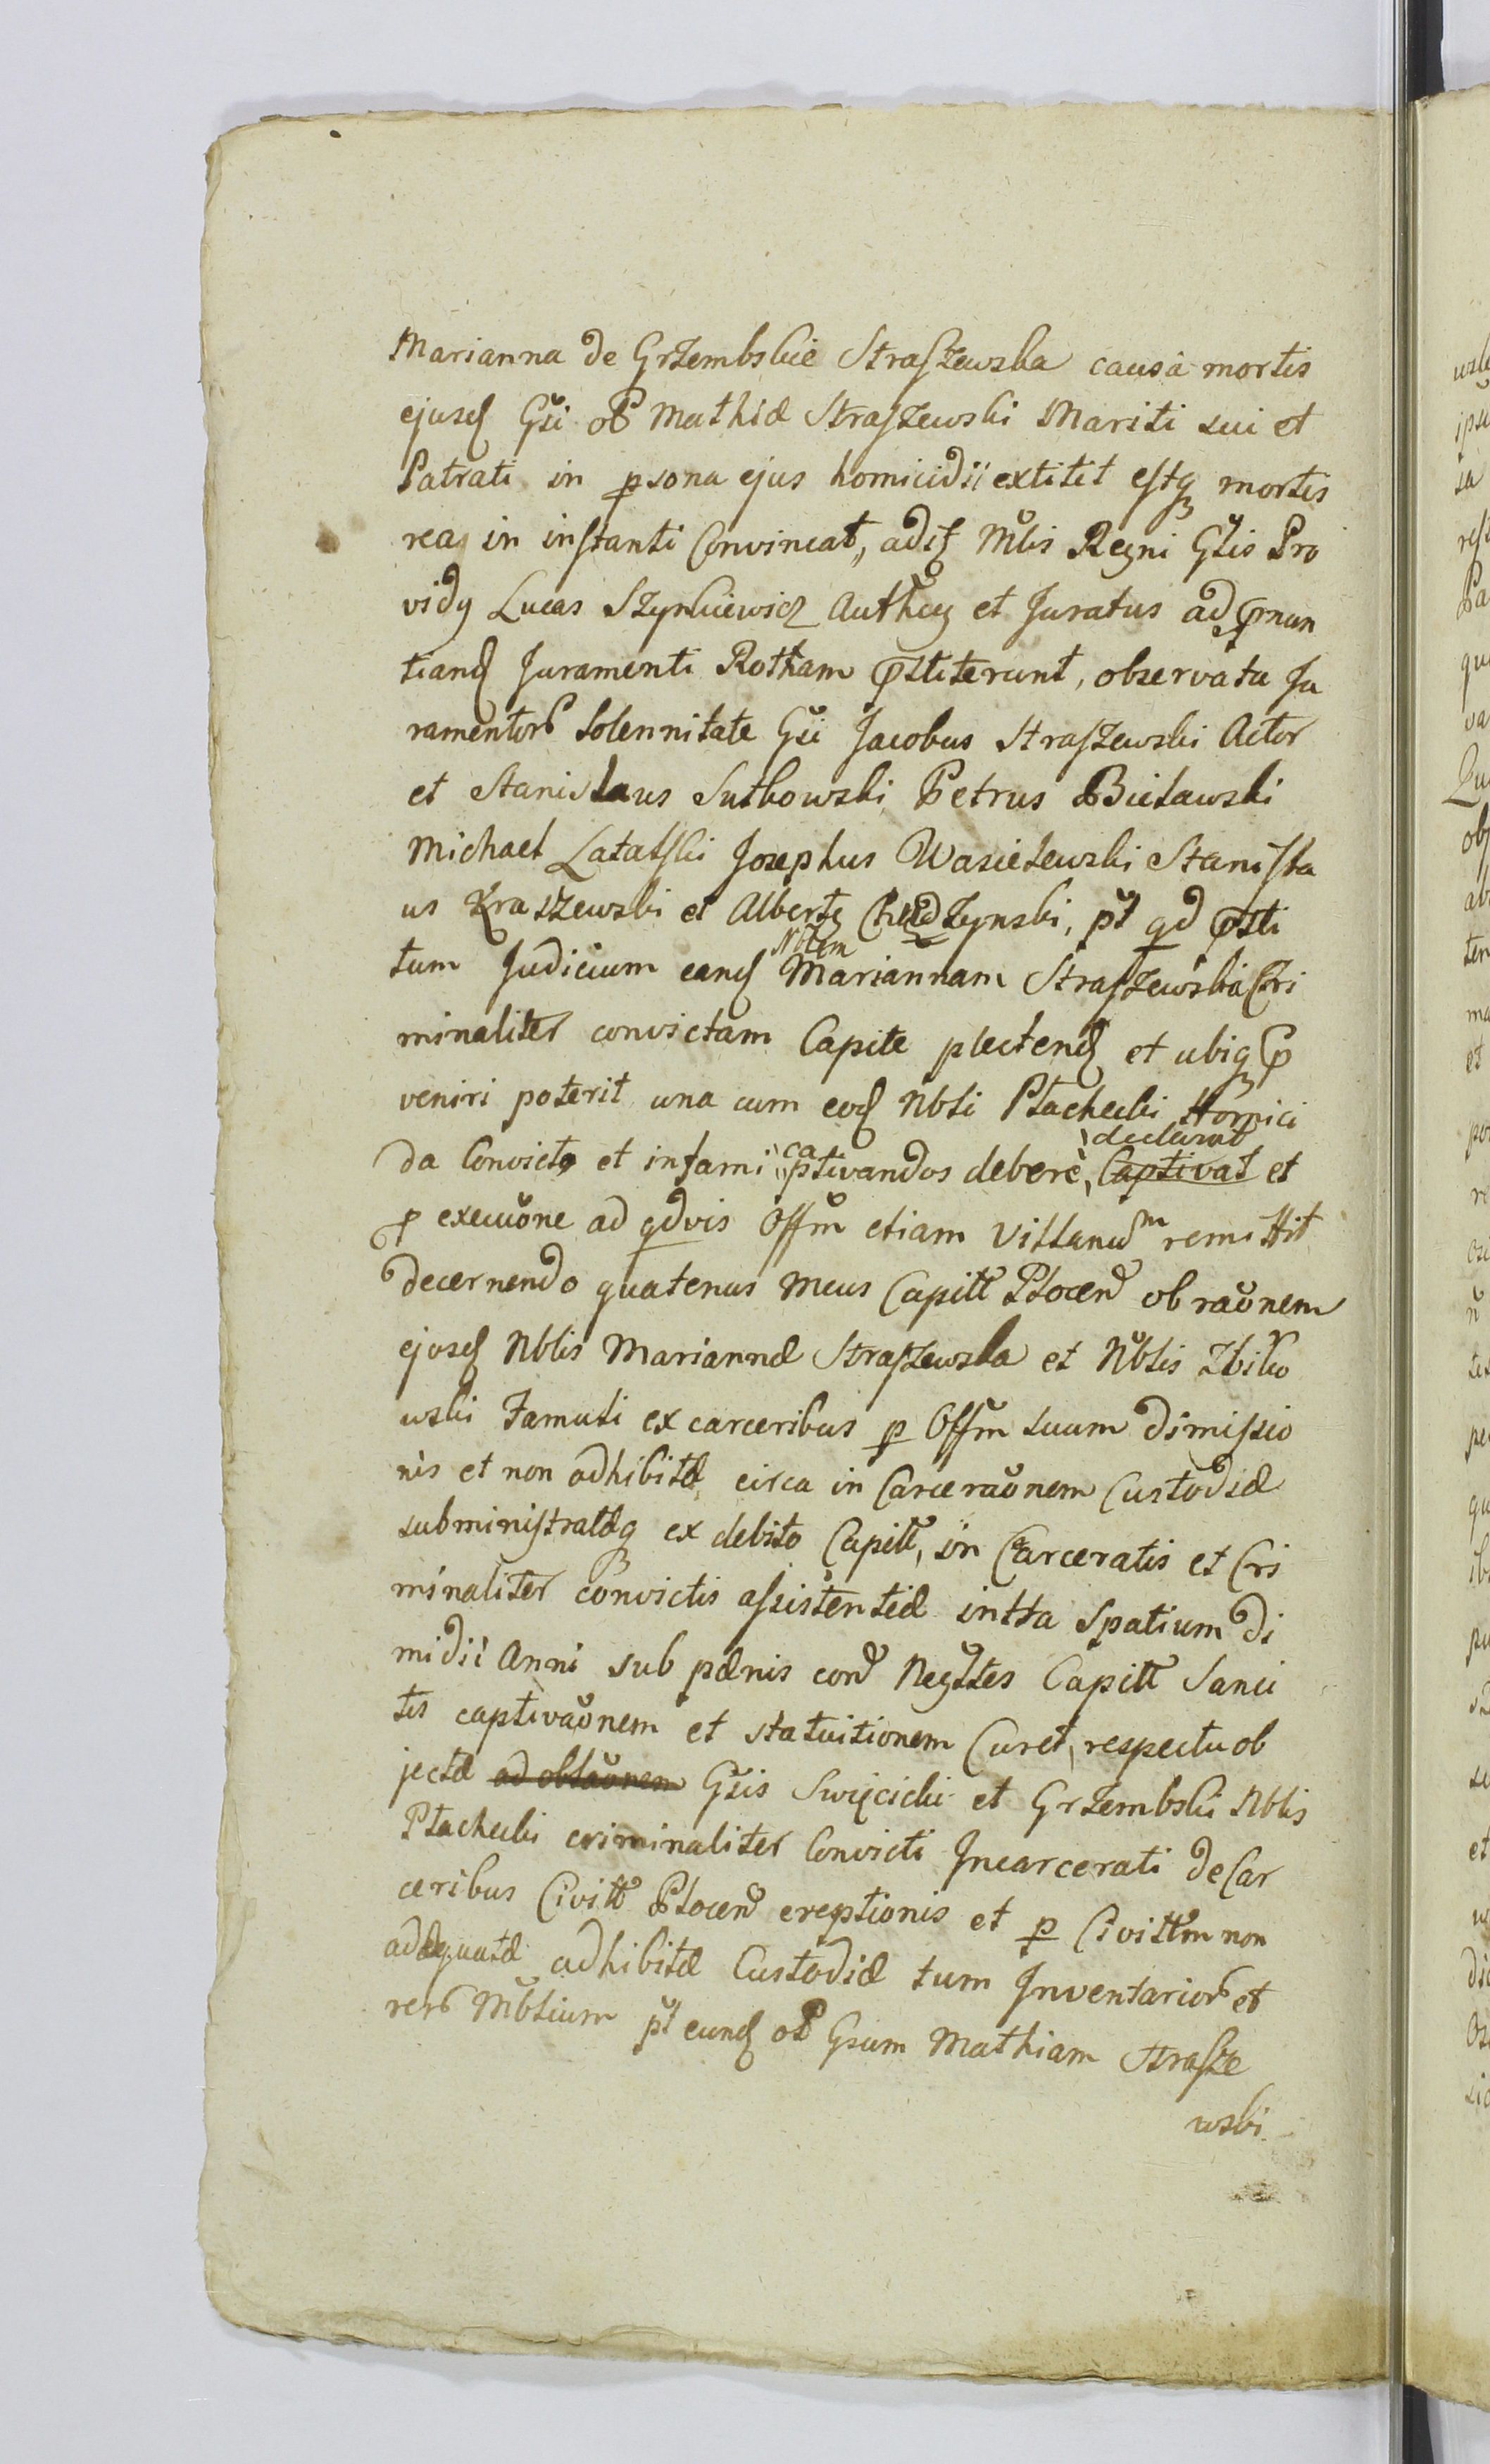 Marianna de Grzembskie Straszewska causa mortis
ejusd Gsi ol Mathiæ Straszewski Mariti sui et
Patrati in psona ejus homicidii extitit estq mortis
rea, in instanti Convincat, adst Mblis Regni Glis Pro
vidg Lucas Szynkiewicz Authcg et Juratus ad pnun
tiand Juramenti Rotham pstiterunt, observata Ju
ramentor Solennitate Gsi Jacobus Straszewski Actor
et Stanislaus Sutkowski Petrus Bielawski
Michael Latalski Josephus Wasielewski Stanisla
us Kraszewski et Albertg Chudzynski, pt qd psti
tum Judicium eand Nblem Mariannam Straszewska Cri
minaliter convictam Capite plectend et ubiq p
veniri poterit una cum eod Nbli Płachecki Homici
da Convicto et infami captivandos debere, declarat Captivat et
p execuõne ad qdvis Offm etiam Villanum remittit
decernendo quatenus Meus Capitt Plocen ob raõnem
ejusd Nblis Mariannæ Straszewska et Nblis Zbiko
wski Famuli ex carceribus p Offm suum dimissio
nis et non adhibitæ circa in Carceraõnem Custodiæ
subministratæq ex debito Capitt, in Carceratis et Cri
minaliter convictis assistentiæ intra Spatium di
midii Anni sub pænis con Negttes Capitt Sanci
tis captivaõnem et statuitionem Curet, respectu ob
jectæ ad oblaõnem Gsis Swięcicki et Grzembski Nblis
Płachecki criminaliter Convicti Incarcerati de Car
ceribus Civitt Plocen ereptionis et p Civittm non
adæquatæ adhibitæ Custodiæ tum Inventarior et
rer Mblium pt eund ol Gsum Mathiam Strasze
wski